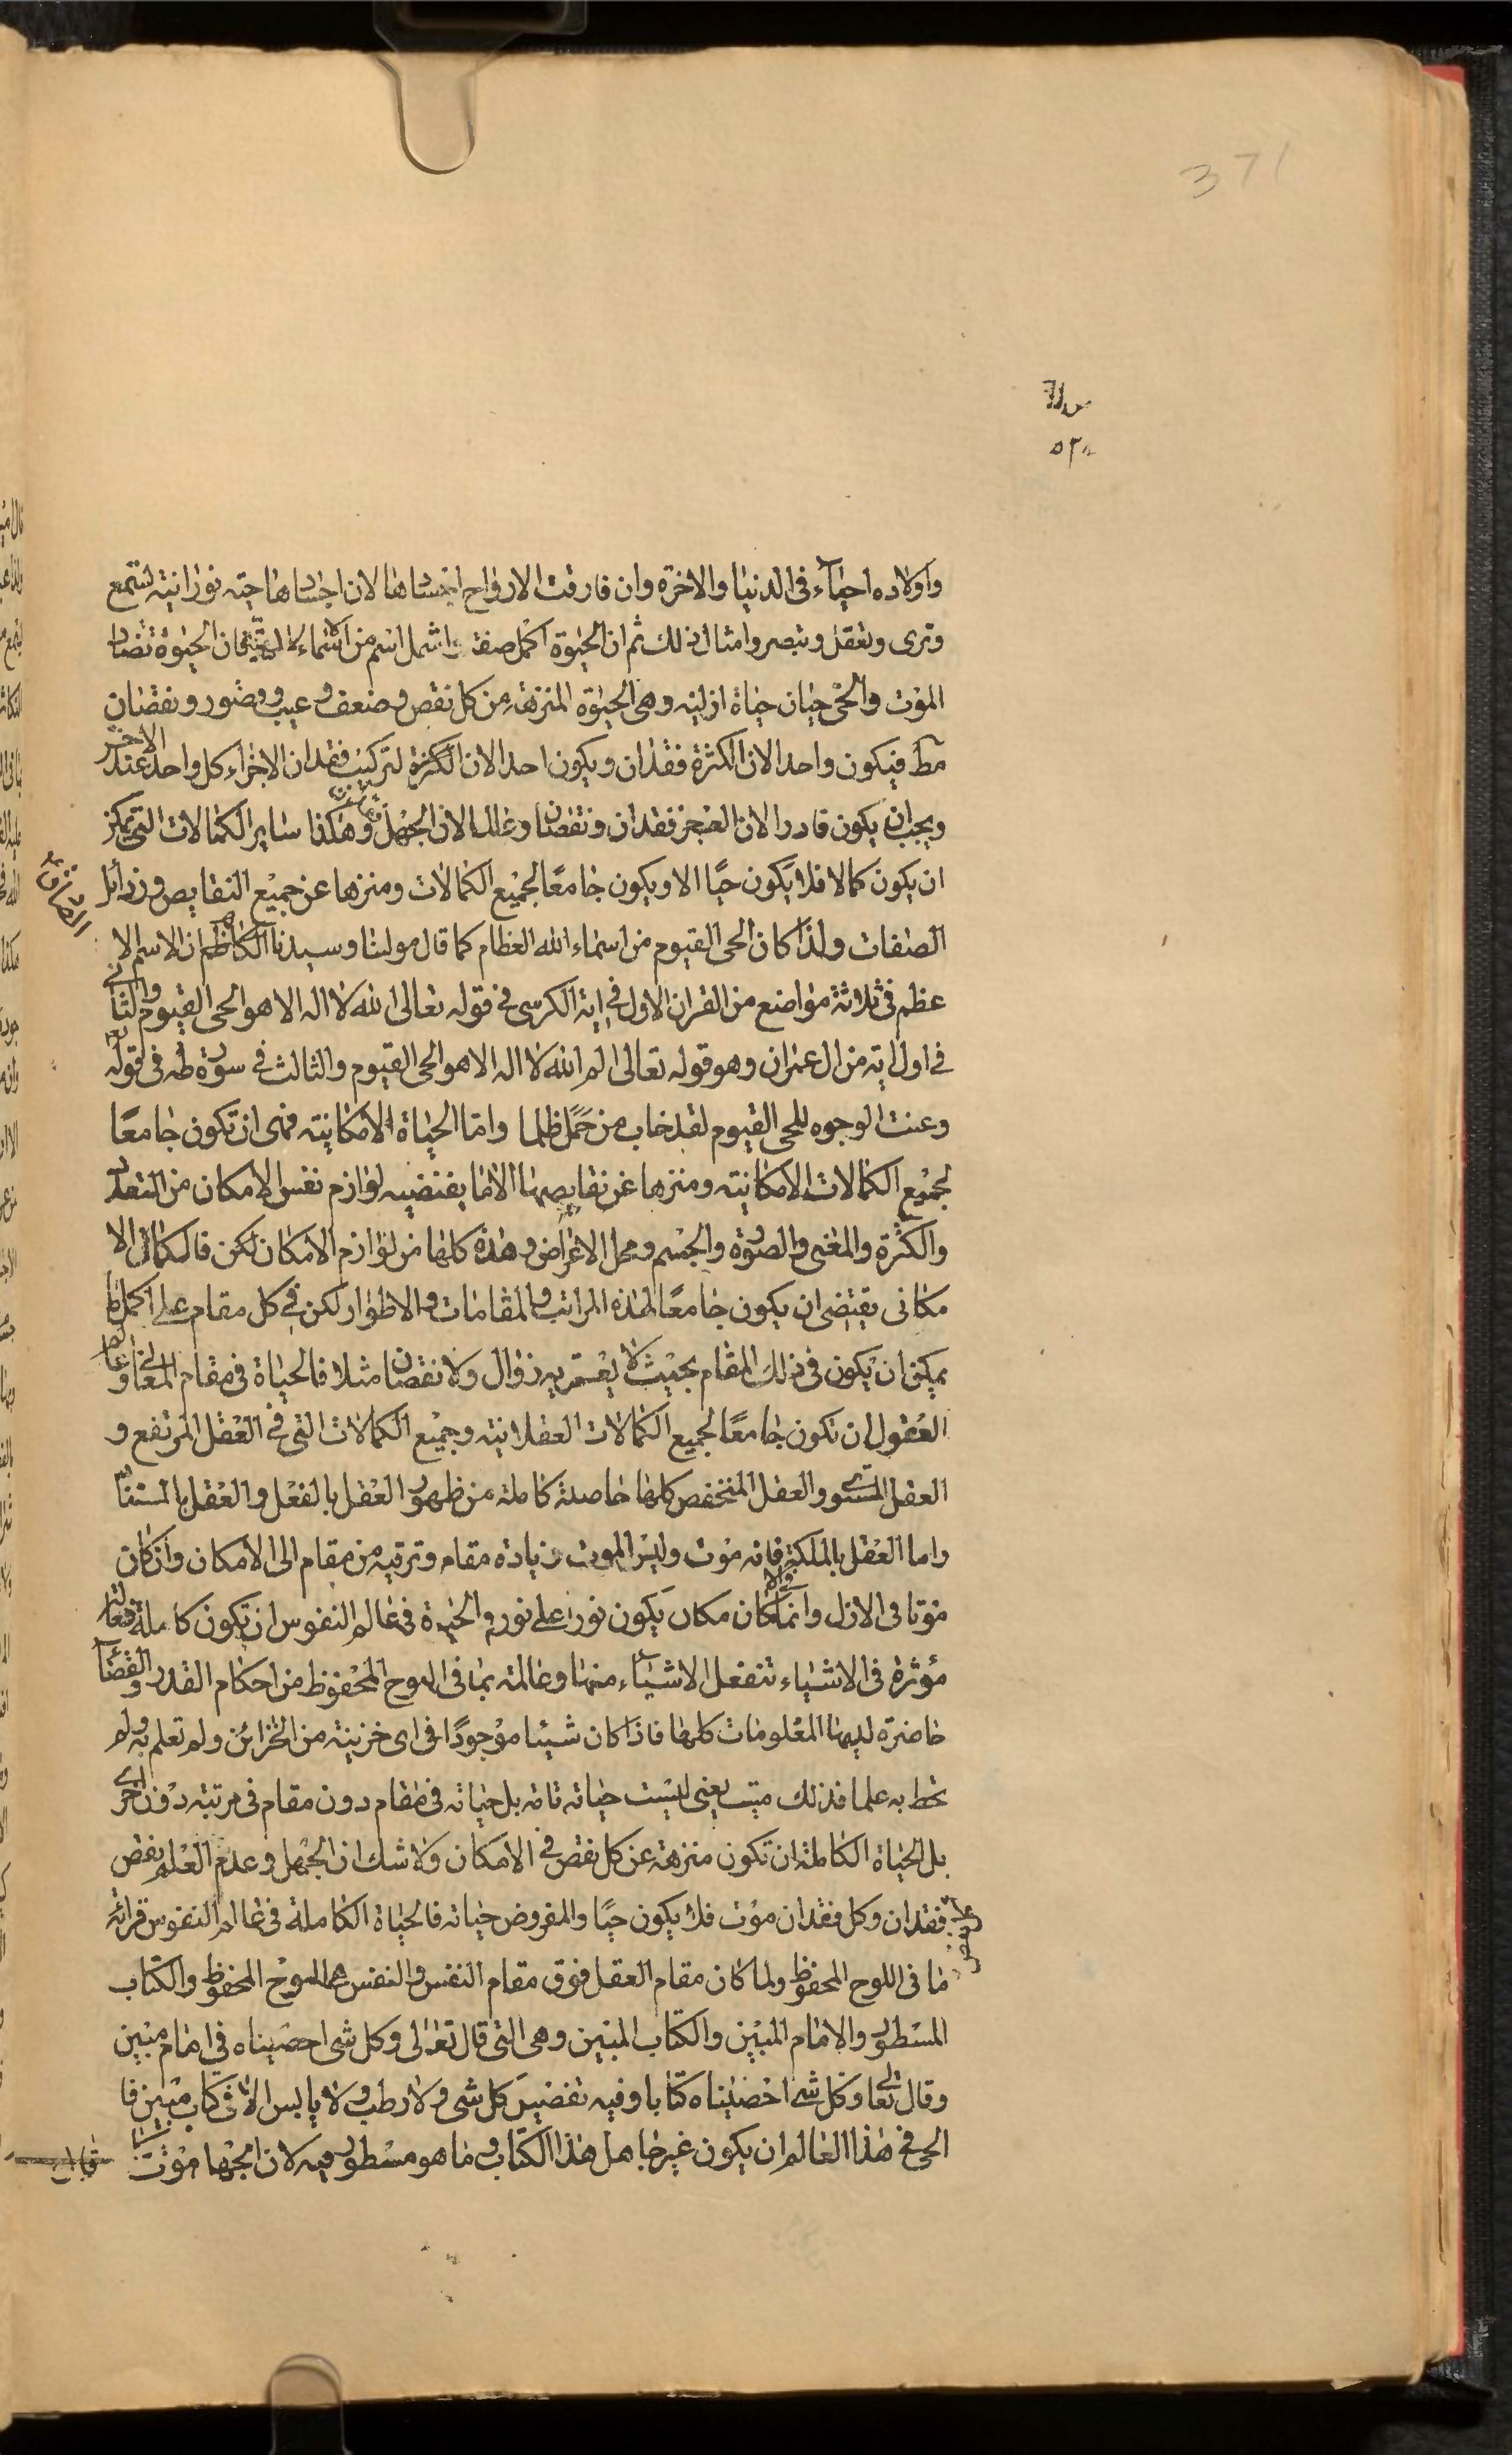 371
٥٢٠
واولاده احياء فى الدنيا والاخرة وان فارقت الارواح اجسادها لان اجسادها حيّه نورانيّة لتسمع
وترى وتعقل وتبصر وامثال ذلك ثم ان الحيوة اكمل صفة واشمل اسم من اسماء الالهيّة فان الحيوة تضاد
الموت والحى حيان حياة ازلية وهى الحيوة المنزهة من كل نقص وضعف وعيب وقصور ونقصان
مط فيكون واحدا لان الكثرة فقدان ويكون احدا لان الكثرة لتركيب فقدان الاجزاء كل واحد عند الاخر
ويجب ان يكون قادرا لان العجز فقدان ونقصان وعالما لان الجهل وهكذا ساير الكمالات التى يمكن
ان يكون كمالا فلا يكون حيًا الا ويكون جامعًا لجميع الكمالات ومنزها عن جميع النقايص وزدائل
الصفات ولذا كان الحى القيوم من اسماء الله العظام كما قال مولينا وسيدنا الكاظم ان الاسم الا
عظم فى ثلاثة مواضع من القران الاول فى اية الكرسى فى قوله تعالى الله لا اله الا هو الحى القيوم والثانى
فى اول اية من ال عمران وهو قوله تعالى الم الله لا اله الا هو الحى القيوم والثالث فى سورة طه فى قوله تع
وعنت الوجوه للحى القيوم لقد خاب من حمل ظلما واما الحياة الامكانية فهى ان تكون جامعًا
لجميع الكمالات الامكانية ومنزها عن نقايصها الا ما يقتضيه لوازم نفس الامكان من التعدد
والكثرة والمعنى والصورة والجسم ومحل الاعراض وهذه كلها من لوازم الامكان لكن فالكمال الا
مكانى يقتضى ان يكون جامعًا لهذه المراتب والمقامات والاطوار لكن فى كل مقام على اكمل ما
يمكن ان يكون فى ذلك المقام بحيث لا يعتريه زوال ولا نقصان مثلا فالحياة فى مقام المعانى وعالم
العقول ان تكون جامعًا لجميع الكمالات العقلانية وجميع الكمالات التى فى العقل المرتفع و
العقل المستوى والعقل المنخفض كلها حاصلة كاملة من ظهور العقل بالفعل والعقل بالمستفاد
واما العقل بالملكة فانه موت وليس الموت زيادة مقام وترقيه من مقام الى الامكان وان كان
موتا فى الازل وانما كان مكان يكون نورا على نور والحيوة فى عالم النفوس ان تكون كاملة فعالة
مؤثرة فى الاشياء تنفعل الاشياء منها وعالمة بما فى اللوح المحفوظ من احكام القدر والقضاء
حاضرة لديها المعلومات كلها فاذا كان شيئا موجودًا فى اى خزينة من الخزائن ولم تعلم به ولم
تحط به علما فذلك ميت يعنى ليست حياته تامه بل حياته فى مقام دون مقام فى مرتبة دون اخرى
بل الحياة الكاملة ان تكون منزهة عن كل نقص فى الامكان ولا شك ان الجهل وعدم العلم نقص
فقدان وكل فقدان موت فلا يكون حيًا والمفروض حياته فالحياة الكاملة فى عالم النفوس قرائة
ما فى اللوح المحفوظ ولما كان مقام العقل فوق مقام النفس والنفس هى اللوح المحفوظ والكتاب
المسطور والامام المبين والكتاب المبين وهى التى قال تعالى وكل شى احصيناه فى امام مبين
وقال تعالى وكل شى احصيناه كتابا وفيه تفصيل كل شى ولا رطب ولا يابس الا فى كتاب مبين فا
الحى فى هذا العالم ان يكون غير جاهل هذا الكتاب وما هو مسطور فيه لان الجهل موت